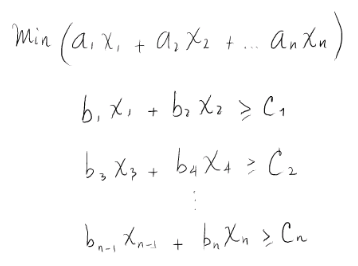 Min (a₁x₁ + a₂x₂ + ... aₙxₙ)
b₁x₁ + b₂x₂ ≥ C₁
b₃x₃ + b₄x₄ ≥ C₂
⋮
bₙ₋₁xₙ₋₁ + bₙxₙ ≥ Cₙ